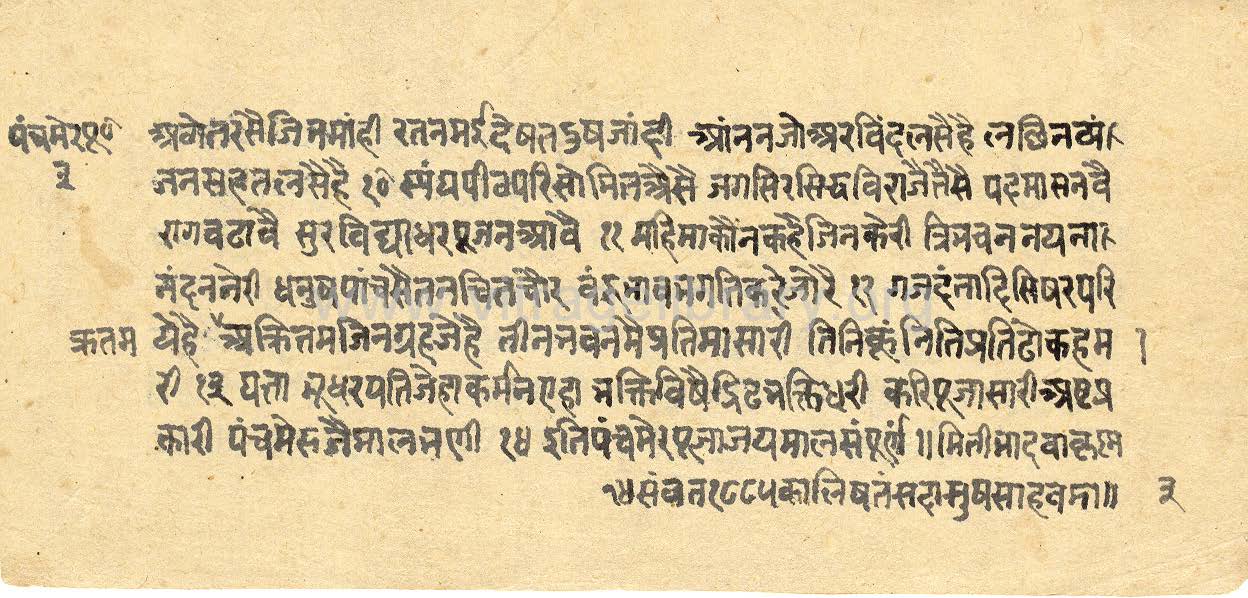 पंचमेरपू०
३
अठोतरसै जिनमांही रतनमई देषत दुष जांही आंनन जो अरविंद लसै है लछिन व्यं
जन सहत लसै है १० स्यंघपीठ परि सोमित अैसै जगसिर सिद्ध विराजै तैसै पदमासन वै
राग वढावै सुर विद्याधर पूजन आवै ११ महिमा कौन कहै जिन केरी त्रिभवन नयना
नंदन नेरी धनुष पांचसै तन चित चौर वंदु भाव भगति कर जौरै १२ गजदंतादि सिषर परि
क्रतम येहै अक्रितम जिनग्रह जेहै तीन भवन मै प्रतिमा सारी तिनिकूं निति प्रति ढोक हम
री १३ घत्ता भूधर पति जेहा कर्मन एहा भक्ति विषै द्रिढ भक्ति धरी करि पूजा सारी अष्ट प्र
कारी पंचमेर जैमाल भणी १४ इति पंचमेर पूजा जयमाल संपूर्ण ॥ मिती भादवा
संवत १८८५ का लिषतं सदासुष साह ॥
३